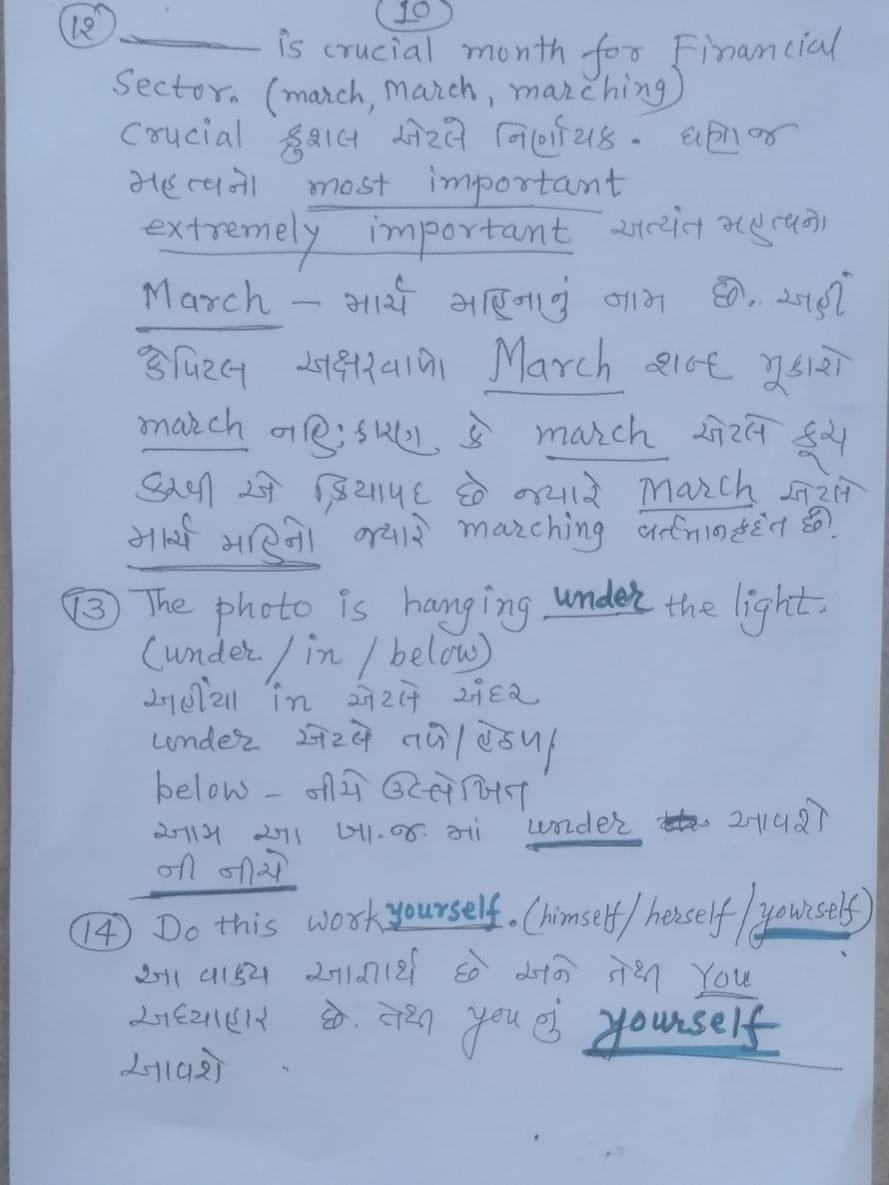 10
(12) ______ is crucial month for Financial
Sector. (march, March, marching)
Crucial ક્રુશલ એટલે નિર્ણાયક. ઘણો જ
મહત્વનો most important
extremely important અત્યંત મહત્વનો
March – માર્ચ મહિનાનું નામ છે. અહીં
કેપિટલ અક્ષરવાળો March શબ્દ મૂકાશે
march નહિ; કારણ કે march એટલે કૂચ
કરવી એ ક્રિયાપદ છે જ્યારે March એટલે
માર્ચ મહિનો જ્યારે marching વર્તમાનકૃદંત છે.
(13) The photo is hanging under the light.
(under / in / below)
અહીંયા in એટલે અંદર
under એટલે તળે/હેઠળ/
below – નીચે ઉલ્લેખિત
આમ આ ખા.જ. માં under આવશે
ની નીચે
(14) Do this work yourself. (himself/herself/yourself)
આ વાક્ય આજ્ઞાર્થ છે અને તેથી You
અધ્યાહાર છે. તેથી you નું yourself
આવશે.